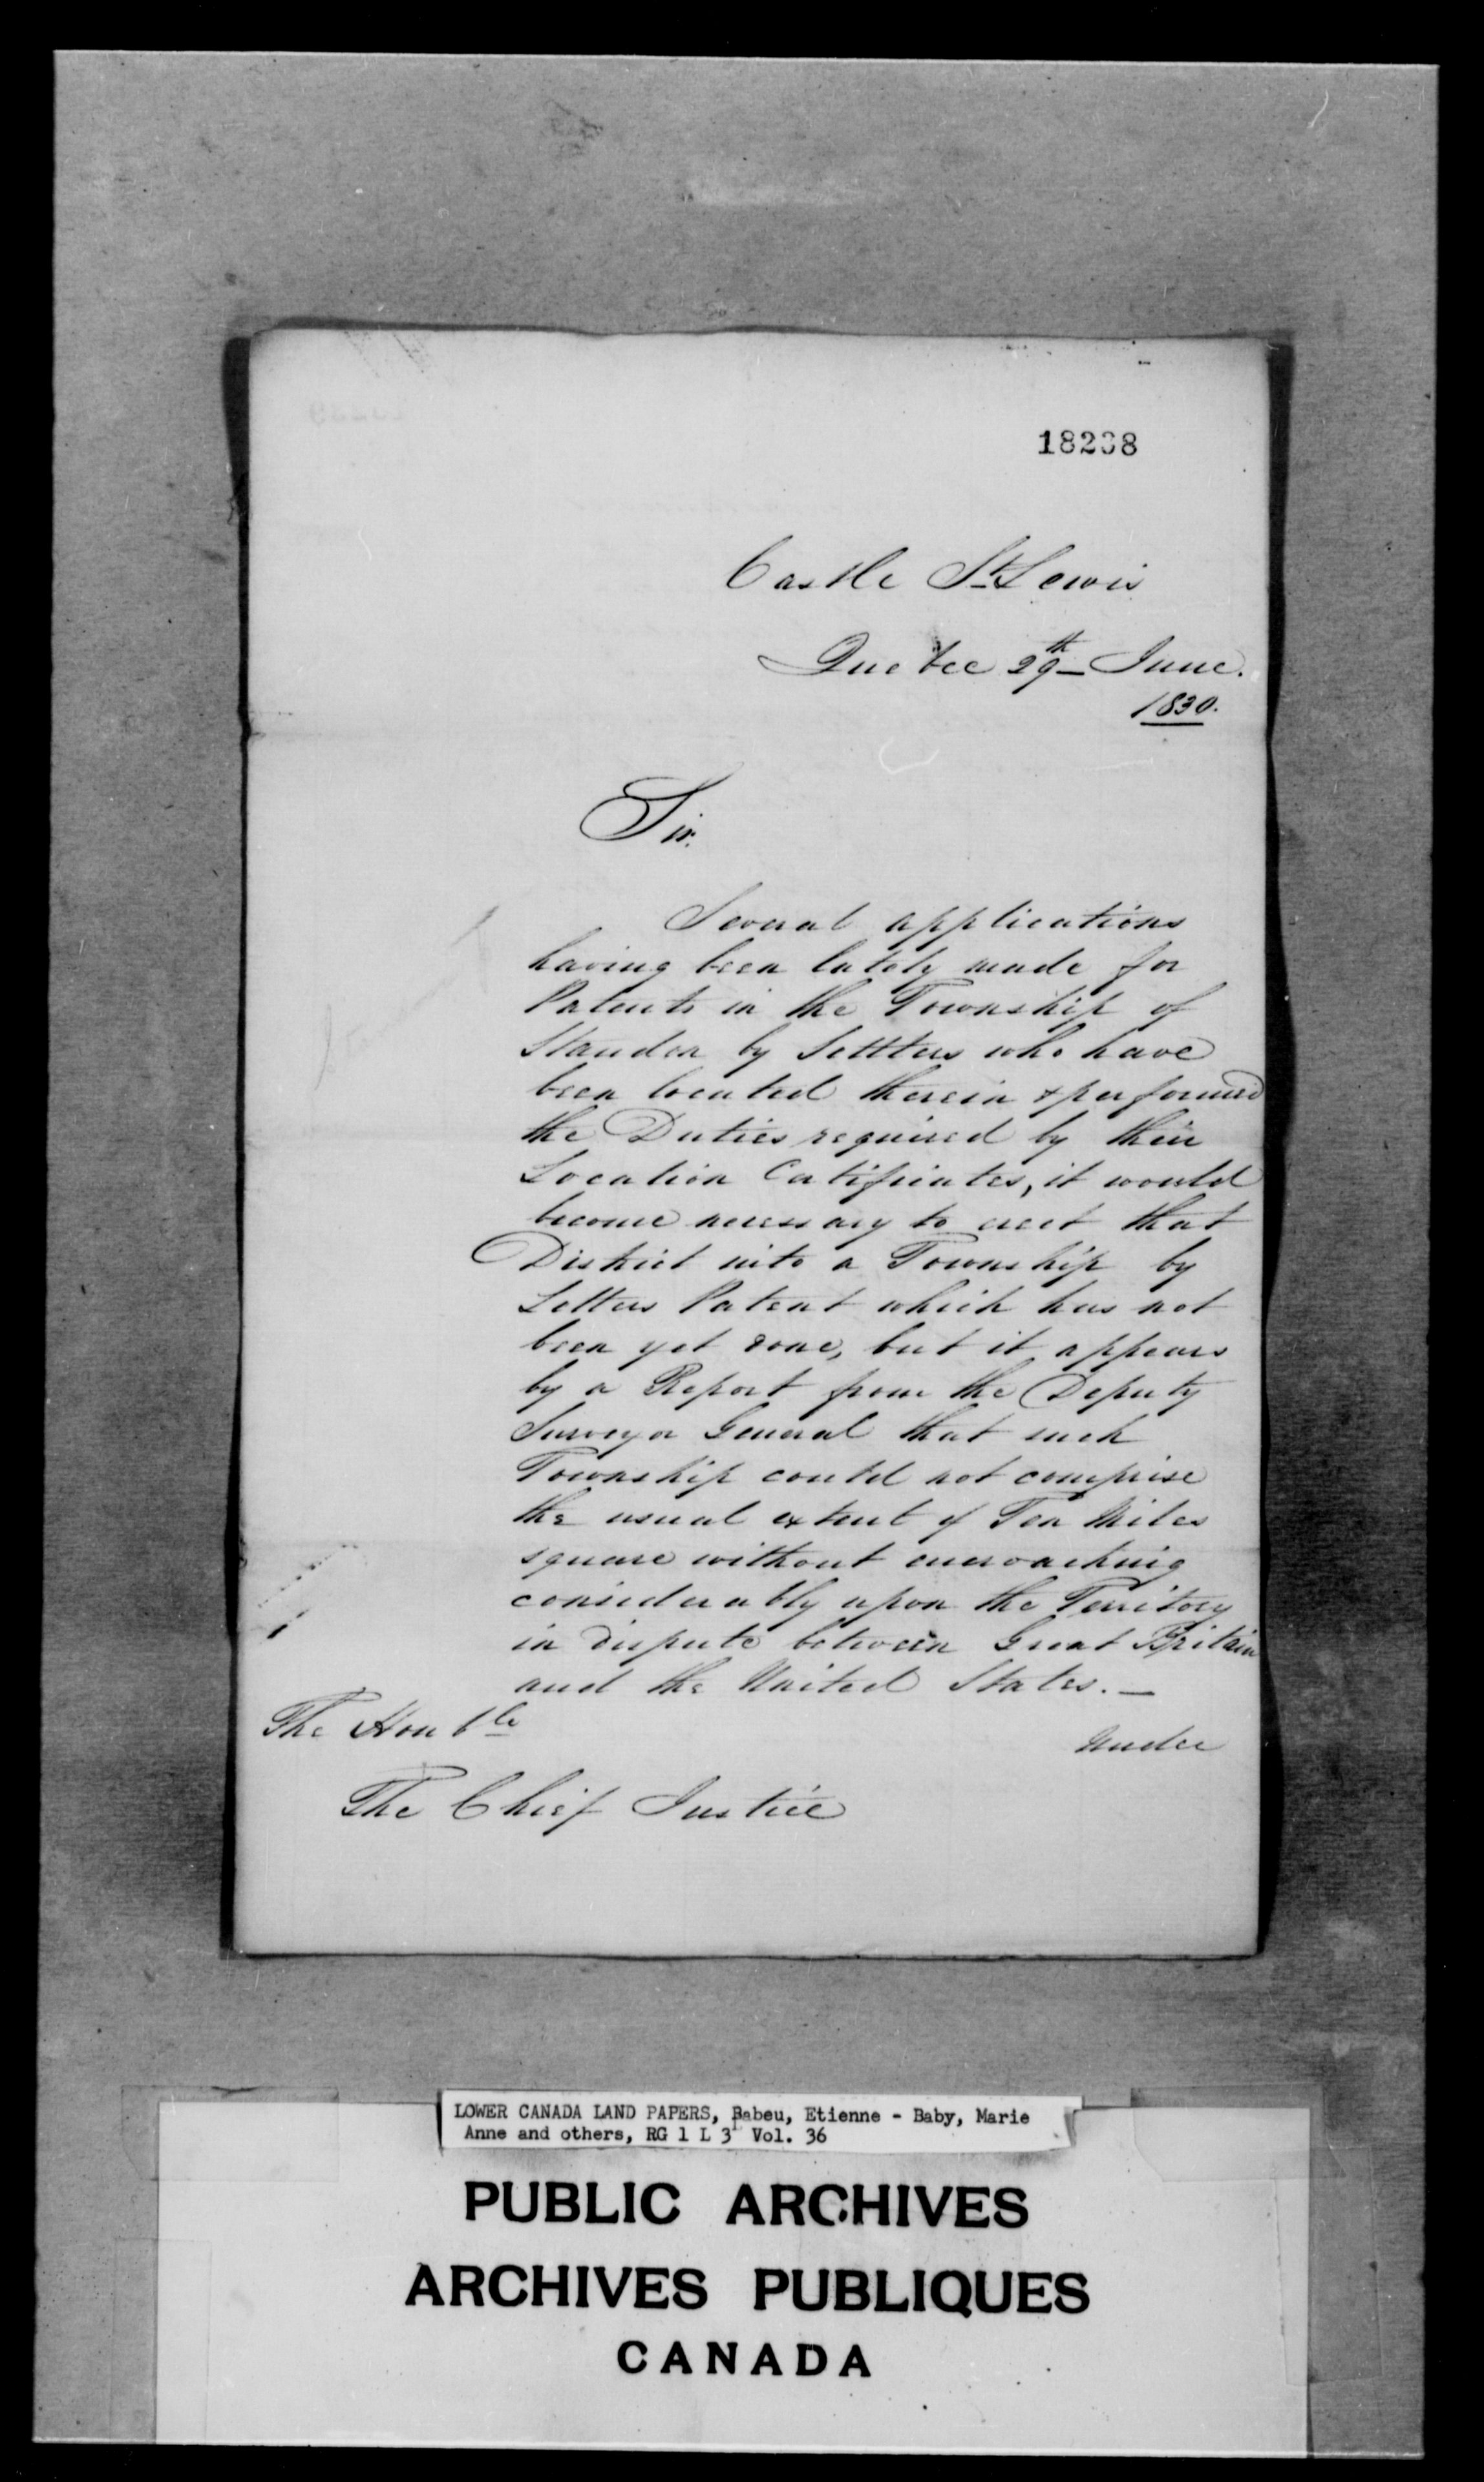 18238
Castle St Lewis
Quebec 29th June.
1830.
Sir.
Several applications
having been lately made for
Patents in the Township of
Standon by Settlers who have
been located therein & performed
the Duties required by their
Location Certificates, it would
become necessary to erect that
District into a Township by
Letters Patent which has not
been yet done, but it appears
by a Report from the Deputy
Surveyor General that such
Township could not comprise
the usual extent of Ten Miles
square without encroaching
considerably upon the Territory
in dispute between Great Britain
and the United States. —
Under
The Honble
The Chief Justice
LOWER CANADA LAND PAPERS, Babeu, Etienne - Baby, Marie
Anne and others, RG 1 L 3 Vol. 36
PUBLIC ARCHIVES
ARCHIVES PUBLIQUES
CANADA